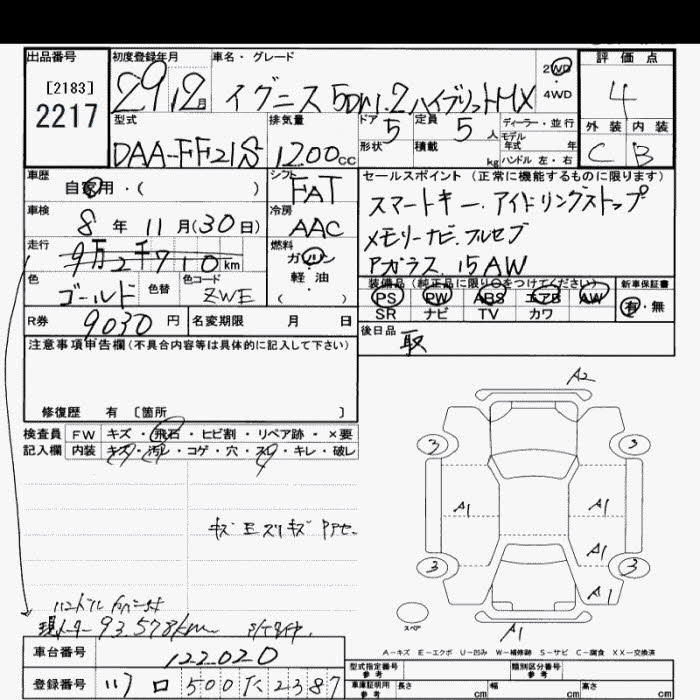 出品番号 初度登録年月 車名・グレード 評価点
[2183] 2217 29 12月 イグニス 5Dｗ1.2ハイブリットMX 2WD ・4WD 4
型式 排気量 ドア 5 定員 5人 ディーラー・並行 外装 内装
DAA-FF21S 1200cc 形状 積載 kg モデル年式 年 ハンドル 左・右 C B
車歴 自家用・( ) シフト FAT セールスポイント (正常に機能するものに限ります)
車検 8年 11月(30日) 冷房 AAC スマートキー.アイドリングストップ
走行 9万2千710km 燃料 ガソリン・軽油 ( ) メモリーナビ.フルセグ
色 ゴールド 色替 色コード ZWE Pガラス.15AW
装備品 (純正品に限り○をつけてください) 新車保証書
PS PW ABS エアB AW 有・無
SR ナビ TV カワ
R券 9030円 名変期限 月 日 後日品 取
注意事項申告欄(不具合内容等は具体的に記入して下さい)
修復歴 有 〔箇所 〕
検査員 FW キズ・飛石・ヒビ割・リペア跡・×要
記入欄 内装 キズ・汚レ・コゲ・穴・スレ・キレ・破レ
A2
3 3
A1 A1
A1
3 3
A1
スペア A1
現メーター 93,578km
A－キズ E－エクボ U－凹み W－補修跡 S－サビ C－腐食 XX－交換済
車台番号 122020
登録番号 500 2387
型式指定番号 参考 類別区分番号 参考
車庫証明用 参考 長さ cm 幅 cm 高さ cm